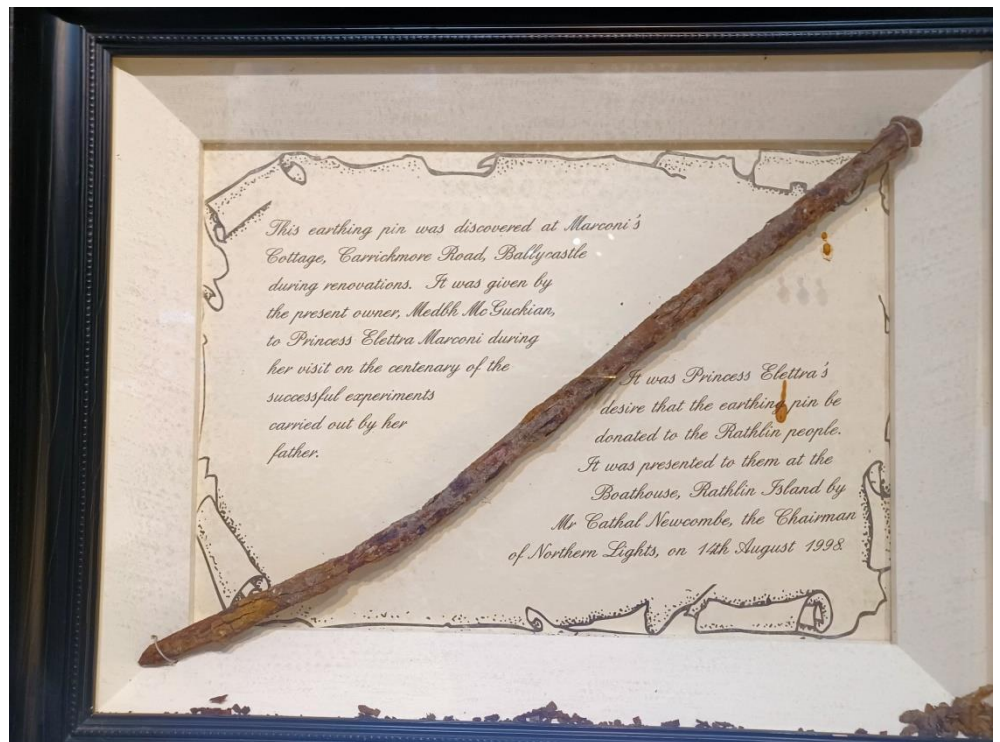 This earthing pin was discovered at Marconi's
Cottage, Carrickmore Road, Ballycastle
during renovations. It was given by
the present owner, Medbh McGuckian,
to Princess Elettra Marconi during
her visit on the centenary of the
successful experiments
carried out by her
father.
It was Princess Elettra's
desire that the earthing pin be
donated to the Rathlin people.
It was presented to them at the
Boathouse, Rathlin Island by
Mr Cathal Newcombe, the Chairman
of Northern Lights, on 14th August 1998.